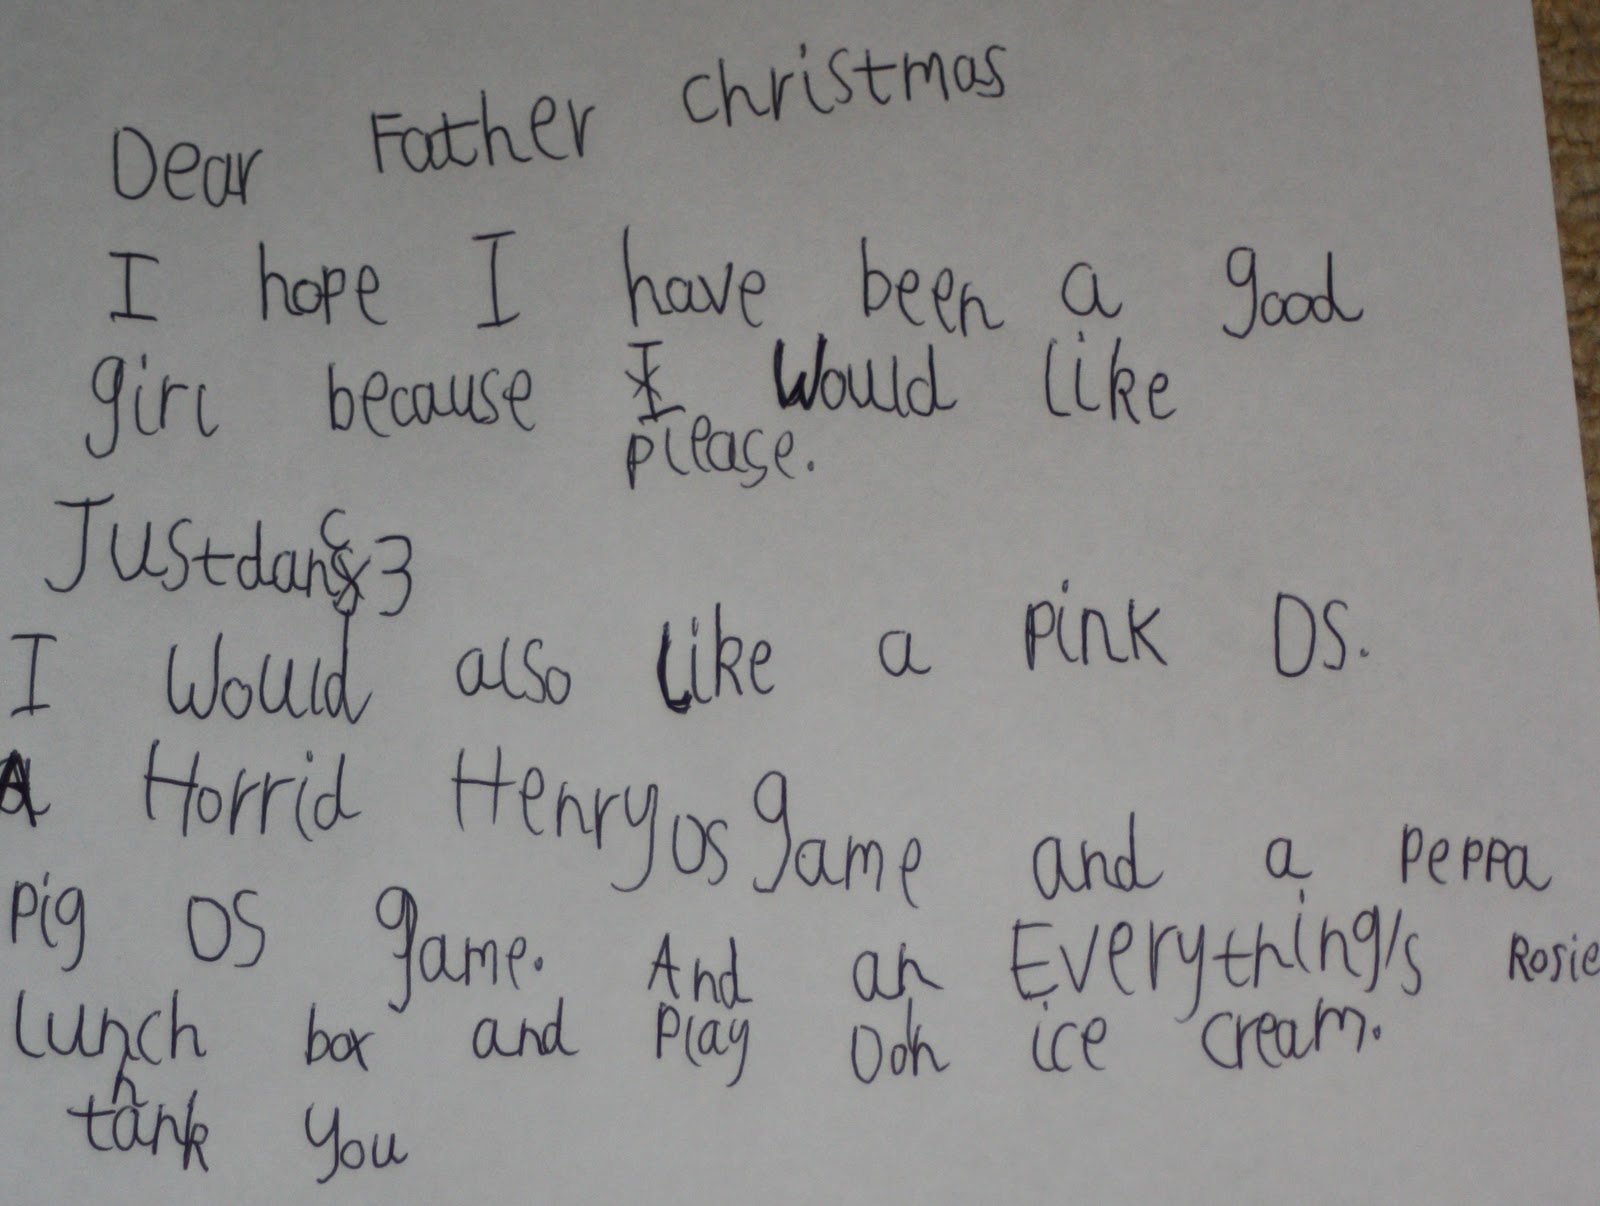 Dear Father christmas
I hope I have been a good
girl because I Would like
please.
Justdance3
I Would also like a pink DS.
A Horrid Henry DS game and a peppa
pig DS game. And an Everything's Rosie
lunch box and play Doh ice cream.
thank you